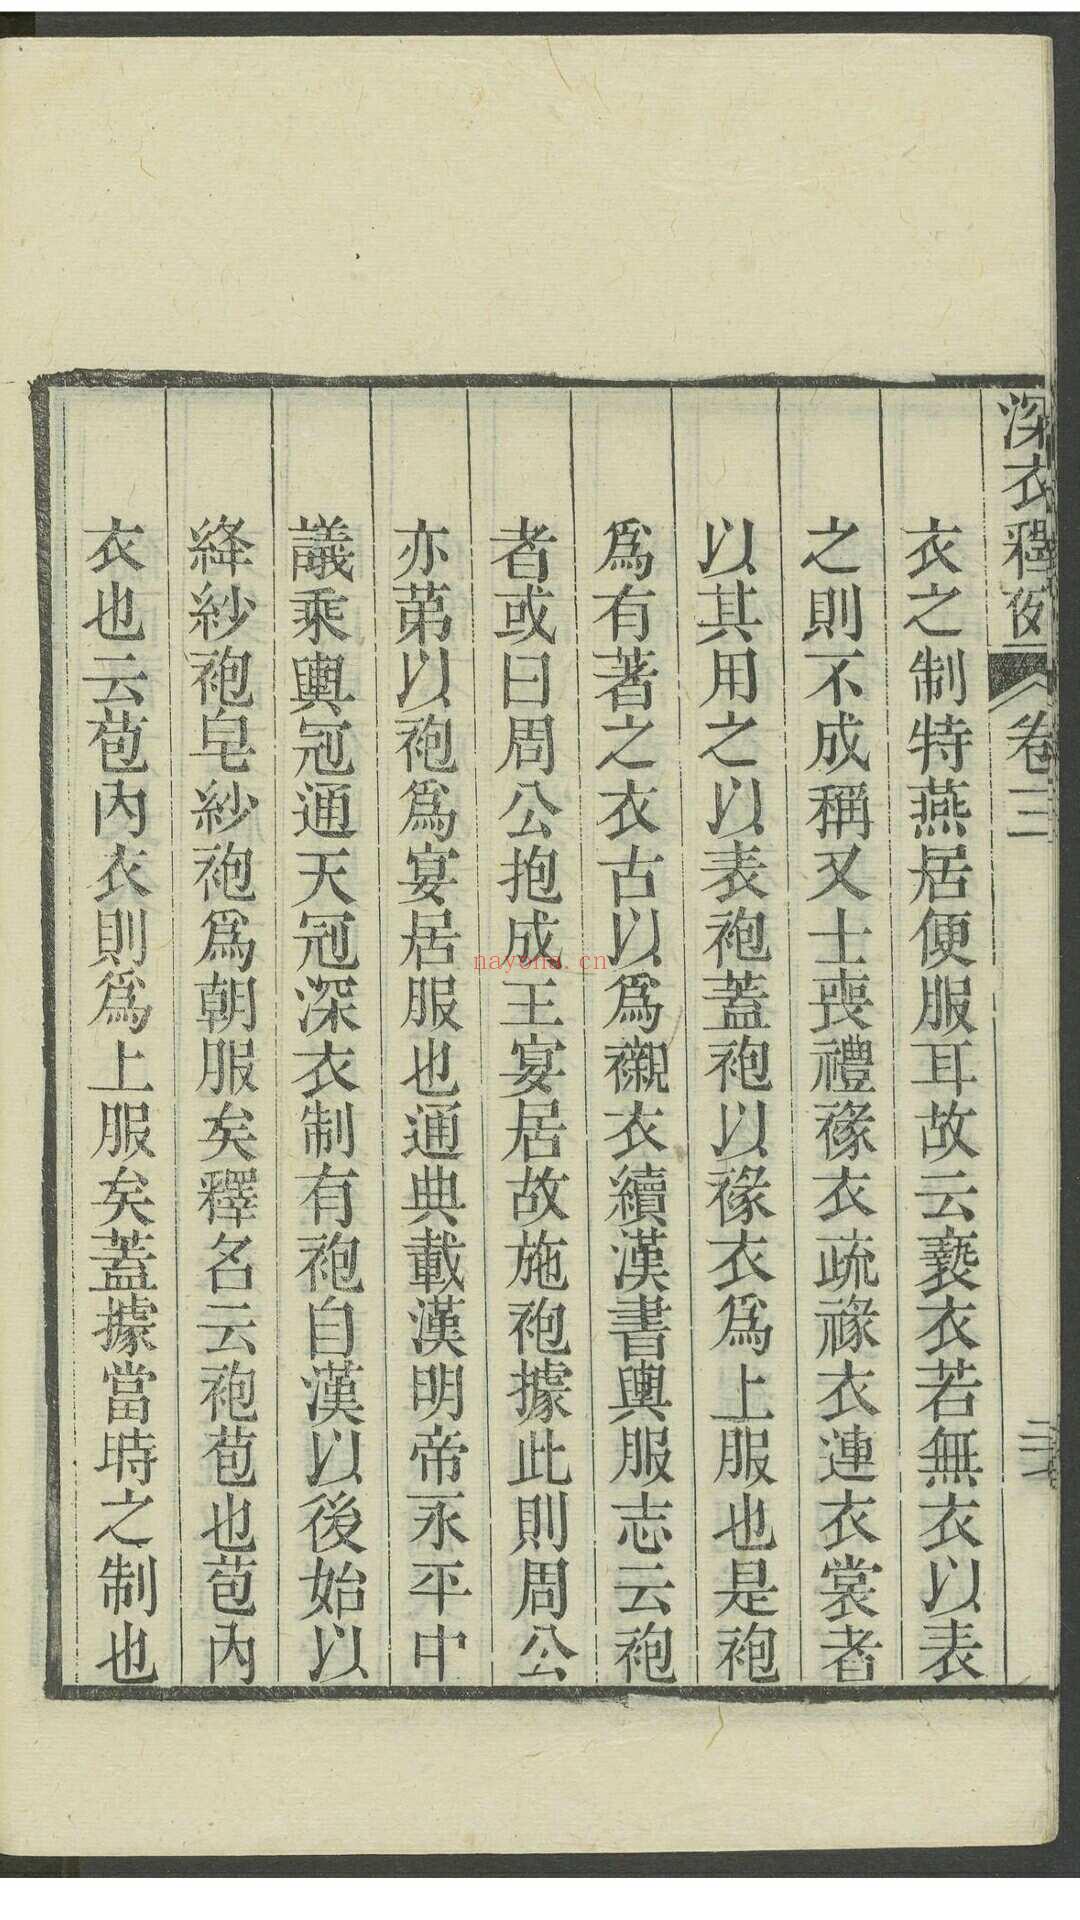 深衣釋例 卷三
衣之制特燕居便服耳故云褻衣若無衣以表
之則不成稱又士喪禮褖衣疏褖衣連衣裳者
以其用之以表袍蓋袍以褖衣爲上服也是袍
爲有著之衣古以爲襯衣續漢書輿服志云袍
者或曰周公抱成王宴居故施袍據此則周公
亦第以袍爲宴居服也通典載漢明帝永平中
議乘輿冠通天冠深衣制有袍自漢以後始以
絳紗袍皂紗袍爲朝服矣釋名云袍苞也苞內
衣也云苞內衣則爲上服矣蓋據當時之制也
nayona.cn